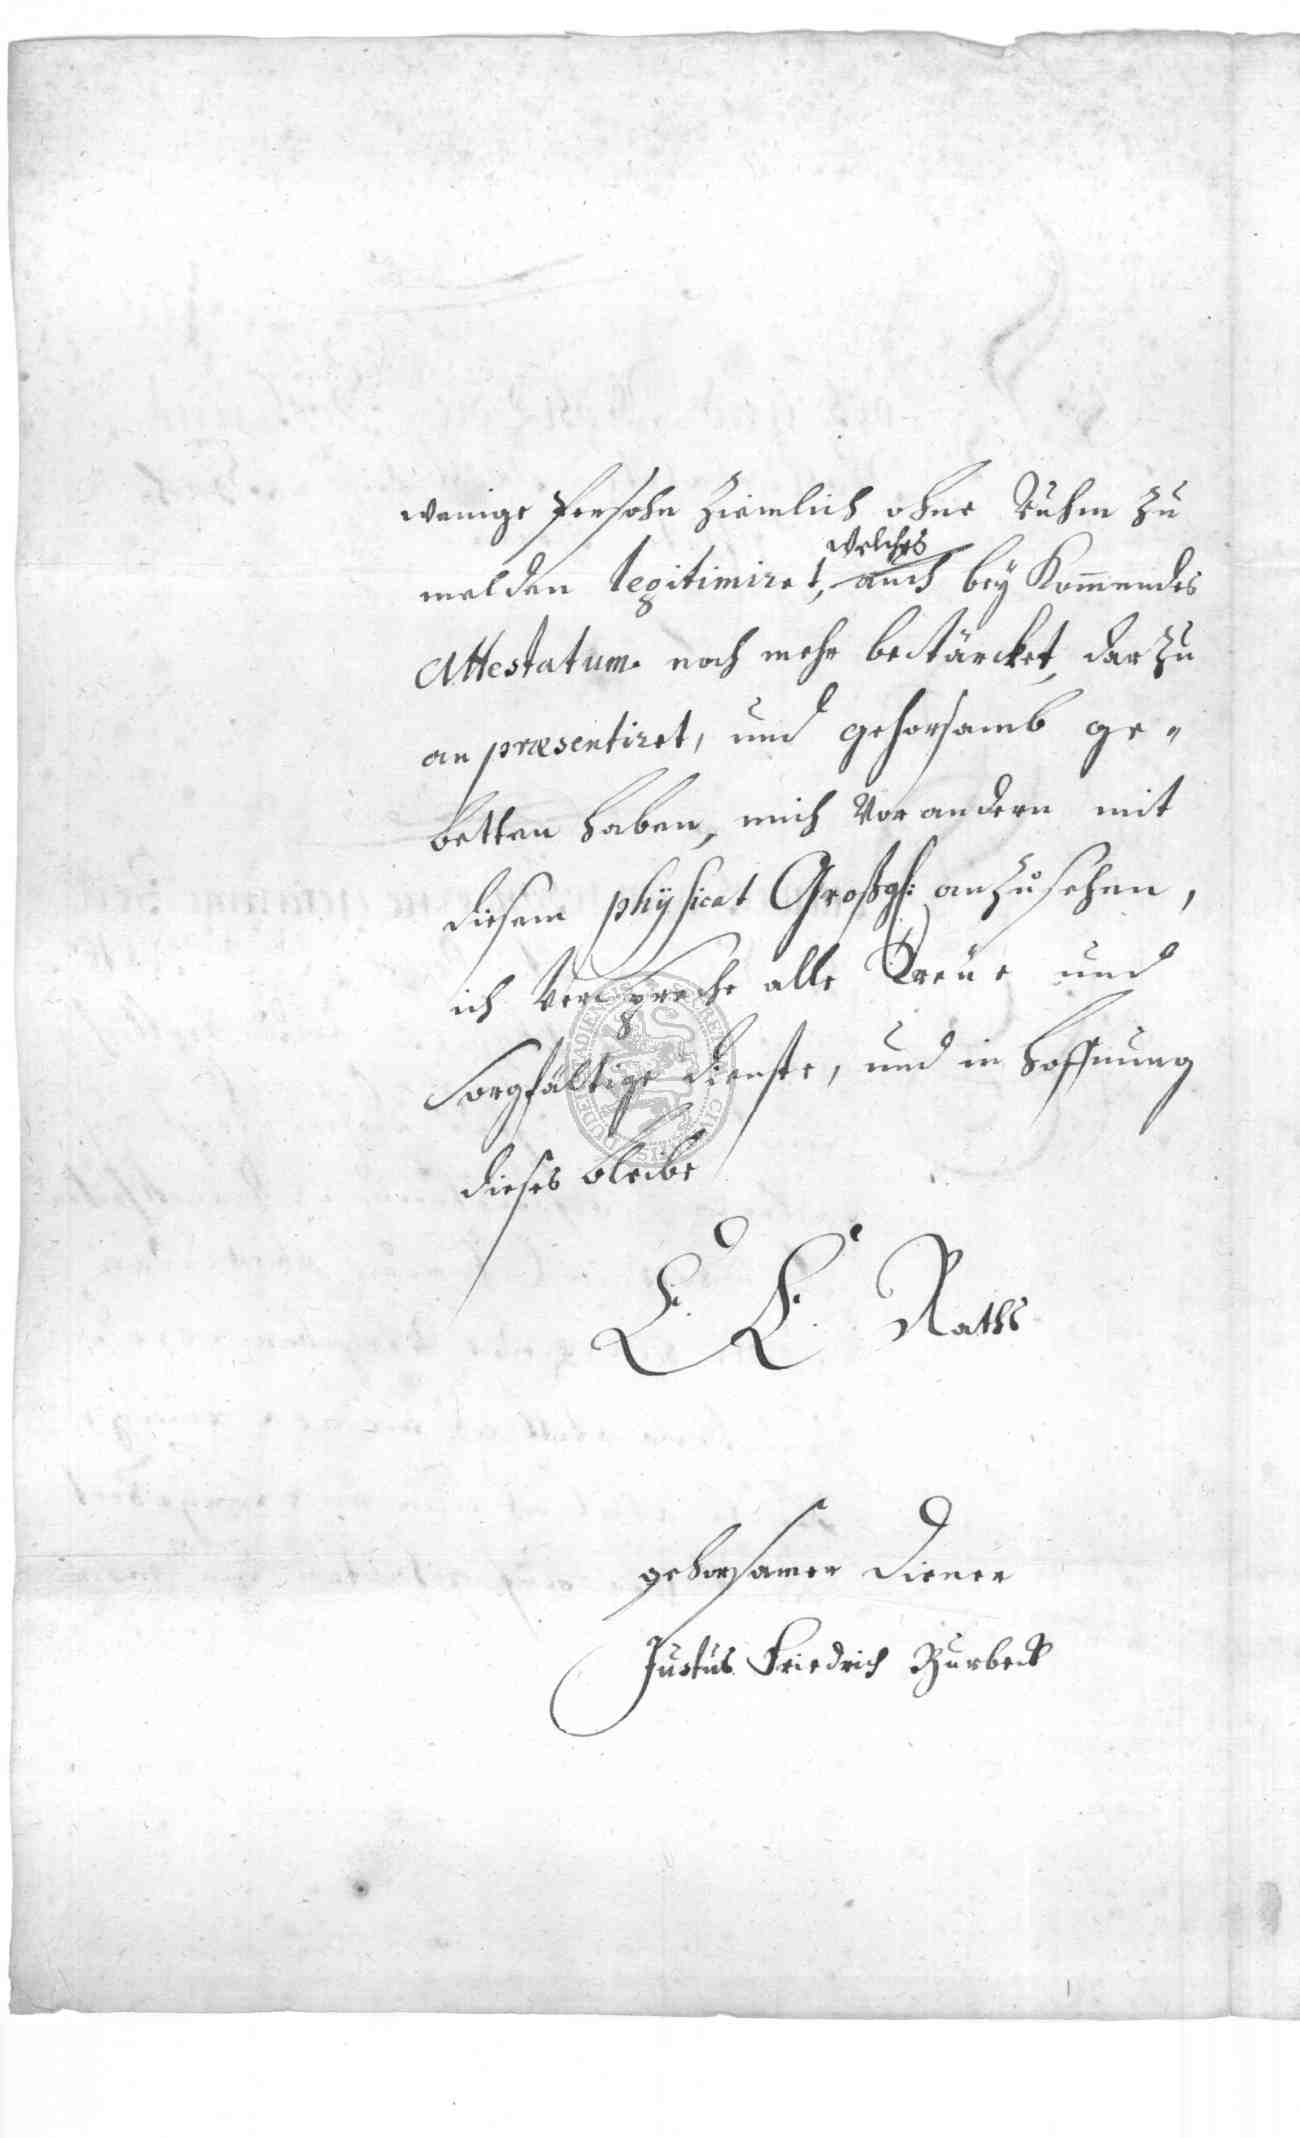 wenige Persohn ziemlich ohne Ruhm zu
welches
melden legitimiret, auch bey kommendes
Attestatum noch mehr bestärcket, darzu
an præsentiret, und gehorsamb ge-
betten haben, mich vor andern mit
diesem physicat Großgl: anzusehen,
ich verspreche alle Treüe und
sorgfältige Dienste, und in Hoffnung
dieses bleibe
E. E. Raths
gehorsamer Diener
Justus Friedrich Burbeck